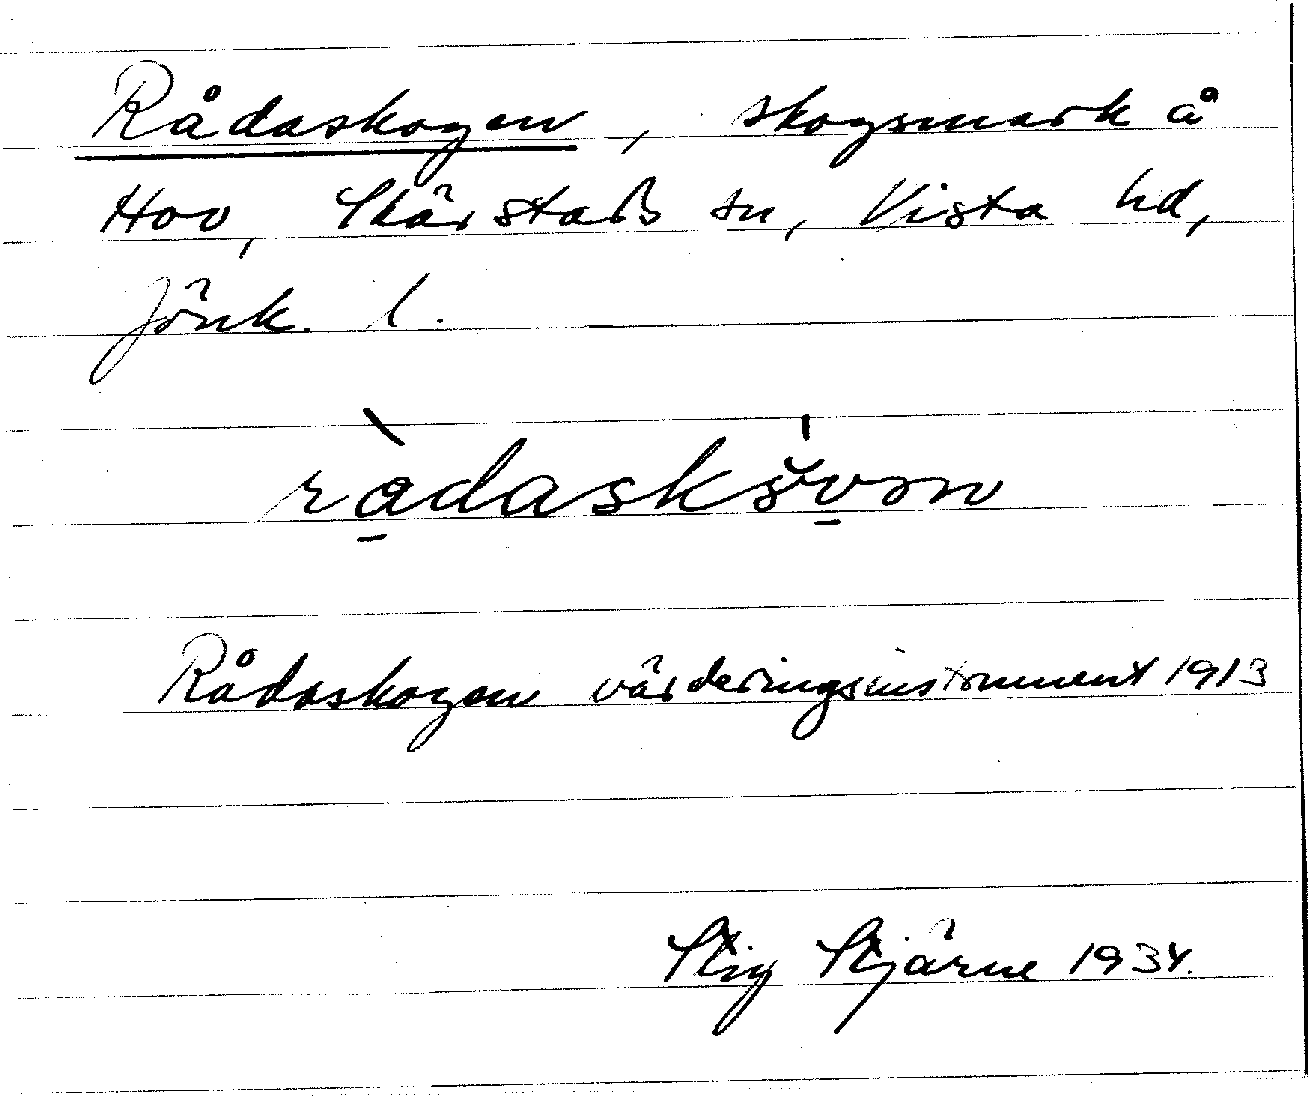 Rådaskogen, skogsmark å
Hov, Skärstads sn, Vista hd,
Jönk. l.
Rådaskogen värderingsinstrument 1913
Stig Stjärne 1934.